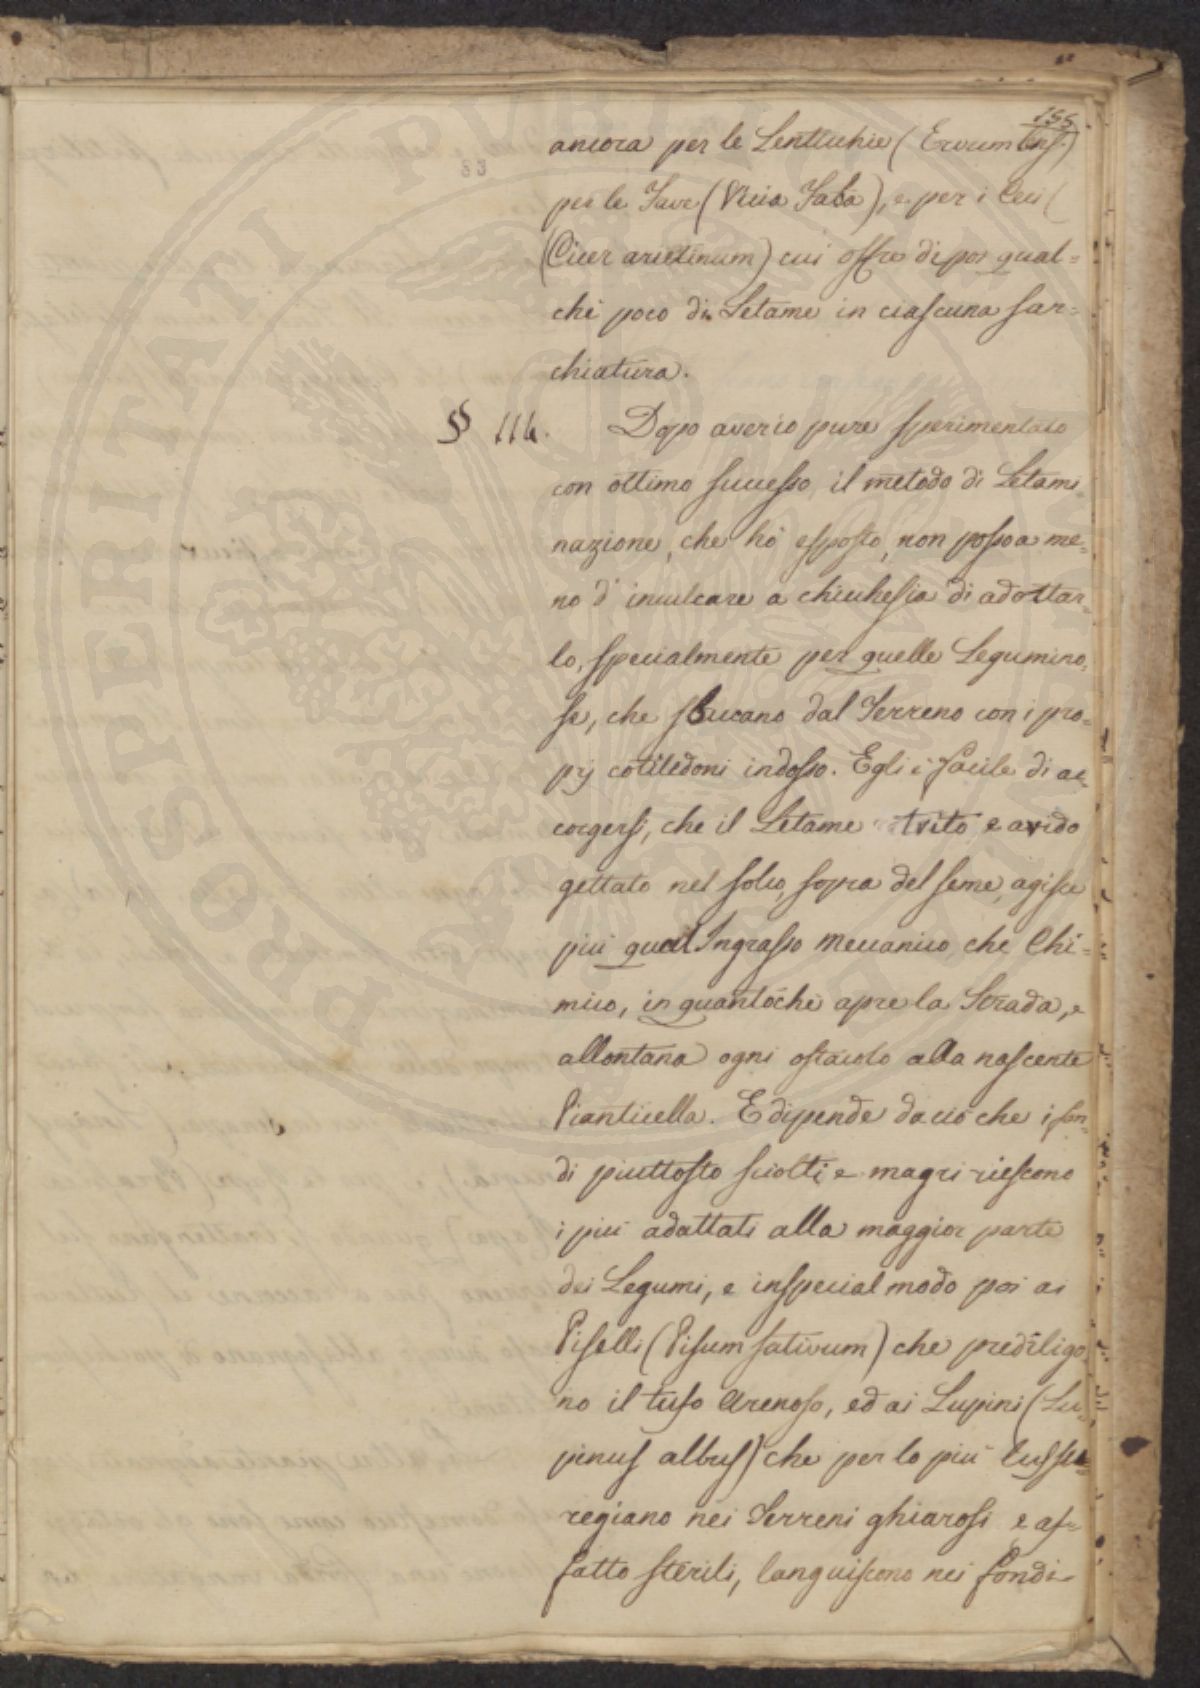 155.
83
ancora per le Lenticchie (Ervum Lens)
per le Fave (Vicia Faba), e per i Ceci (
(Cicer arietinum) cui offro di poi qual=
chè poco di Letame in ciascuna sar=
chiatura.
§ 114. Dopo averio pure sperimentato
con ottimo successo, il metodo di Letami=
nazione, che hò esposto, non posso a me=
no d'inculcare a chicchesia di adottar=
lo, specialmente per quelle Legumino=
se, che sbucano dal Terreno con i pro=
prj cotiledoni indosso. Egli è facile di ac=
corgersi, che il Letame trito e arido
gettato nel solco, sopra del seme, agisce
più qual Ingrasso Meccanico, che Chi=
mico, in quantochè apre la Strada, e
allontana ogni ostacolo alla nascente
Pianticella. E dipende da ciò che i fon=
di piuttosto sciolti e magri riescono
i più adattati alla maggior parte
dei Legumi, e in special modo poi ai
Piselli (Pisum sativum) che prediligo=
no il tufo Arenoso, ed ai Lupini (Lu=
pinus albus) che per lo più lussu=
regiano nei Terreni ghiarosi e af=
fatto sterili, languiscono nei fondi
PROSPERITATI PUBLICAE